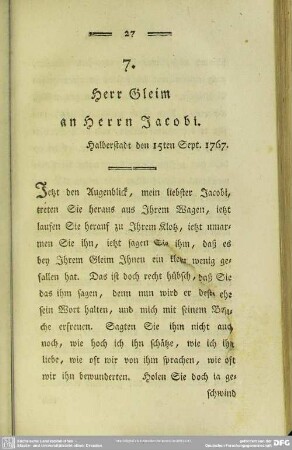 27
7.
Herr Gleim
an Herrn Jacobi.
Halberstadt den 15ten Sept. 1767.
Jetzt den Augenblick, mein liebster Jacobi,
treten Sie heraus aus Ihrem Wagen, ietzt
laufen Sie herauf zu Ihrem Klotz, ietzt umar-
men Sie ihn, ietzt sagen Sie ihm, daß es
bey Ihrem Gleim Ihnen ein klein wenig ge-
fallen hat. Das ist doch recht hübsch, daß Sie
das ihm sagen, denn nun wird er desto ehe
sein Wort halten, und mich mit seinem Besu-
che erfreuen. Sagten Sie ihm nicht auch
noch, wie hoch ich ihn schätze, wie ich ihn
liebe, wie oft wir von ihm sprachen, wie oft
wir ihn bewunderten. Holen Sie doch ia ge-
schwind